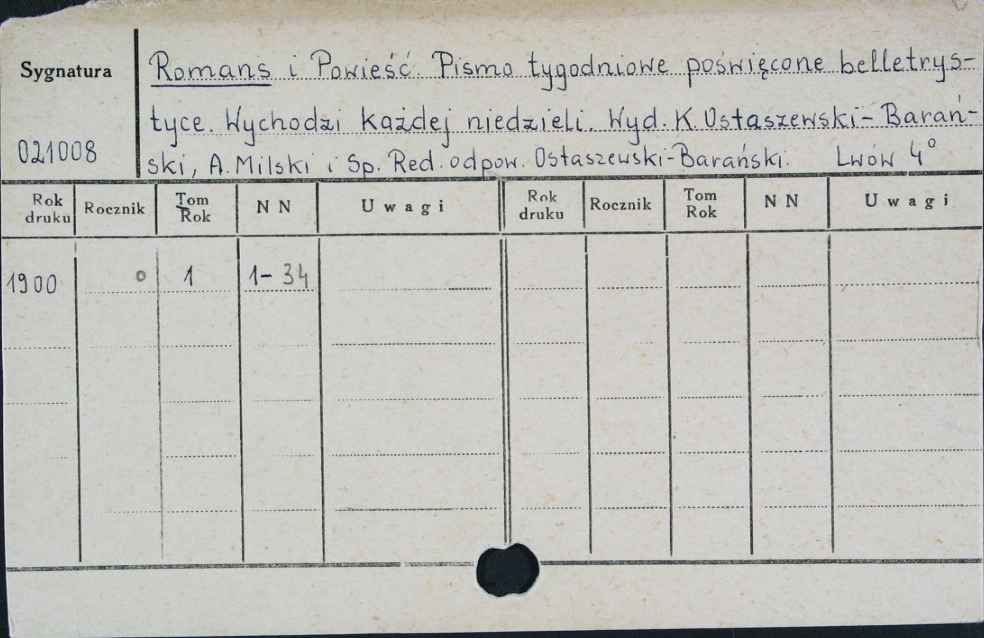 Sygnatura
021008
Romans i Powieść. Pismo tygodniowe poświęcone belletrys-
tyce. Wychodzi każdej niedzieli. Wyd. K. Ostaszewski-Barań-
ski, A. Milski i Sp. Red. odpow. Ostaszewski-Barański. Lwów 4°
Rok druku Rocznik Tom Rok NN Uwagi Rok druku Rocznik Tom Rok NN Uwagi
1900 o 1 1-34